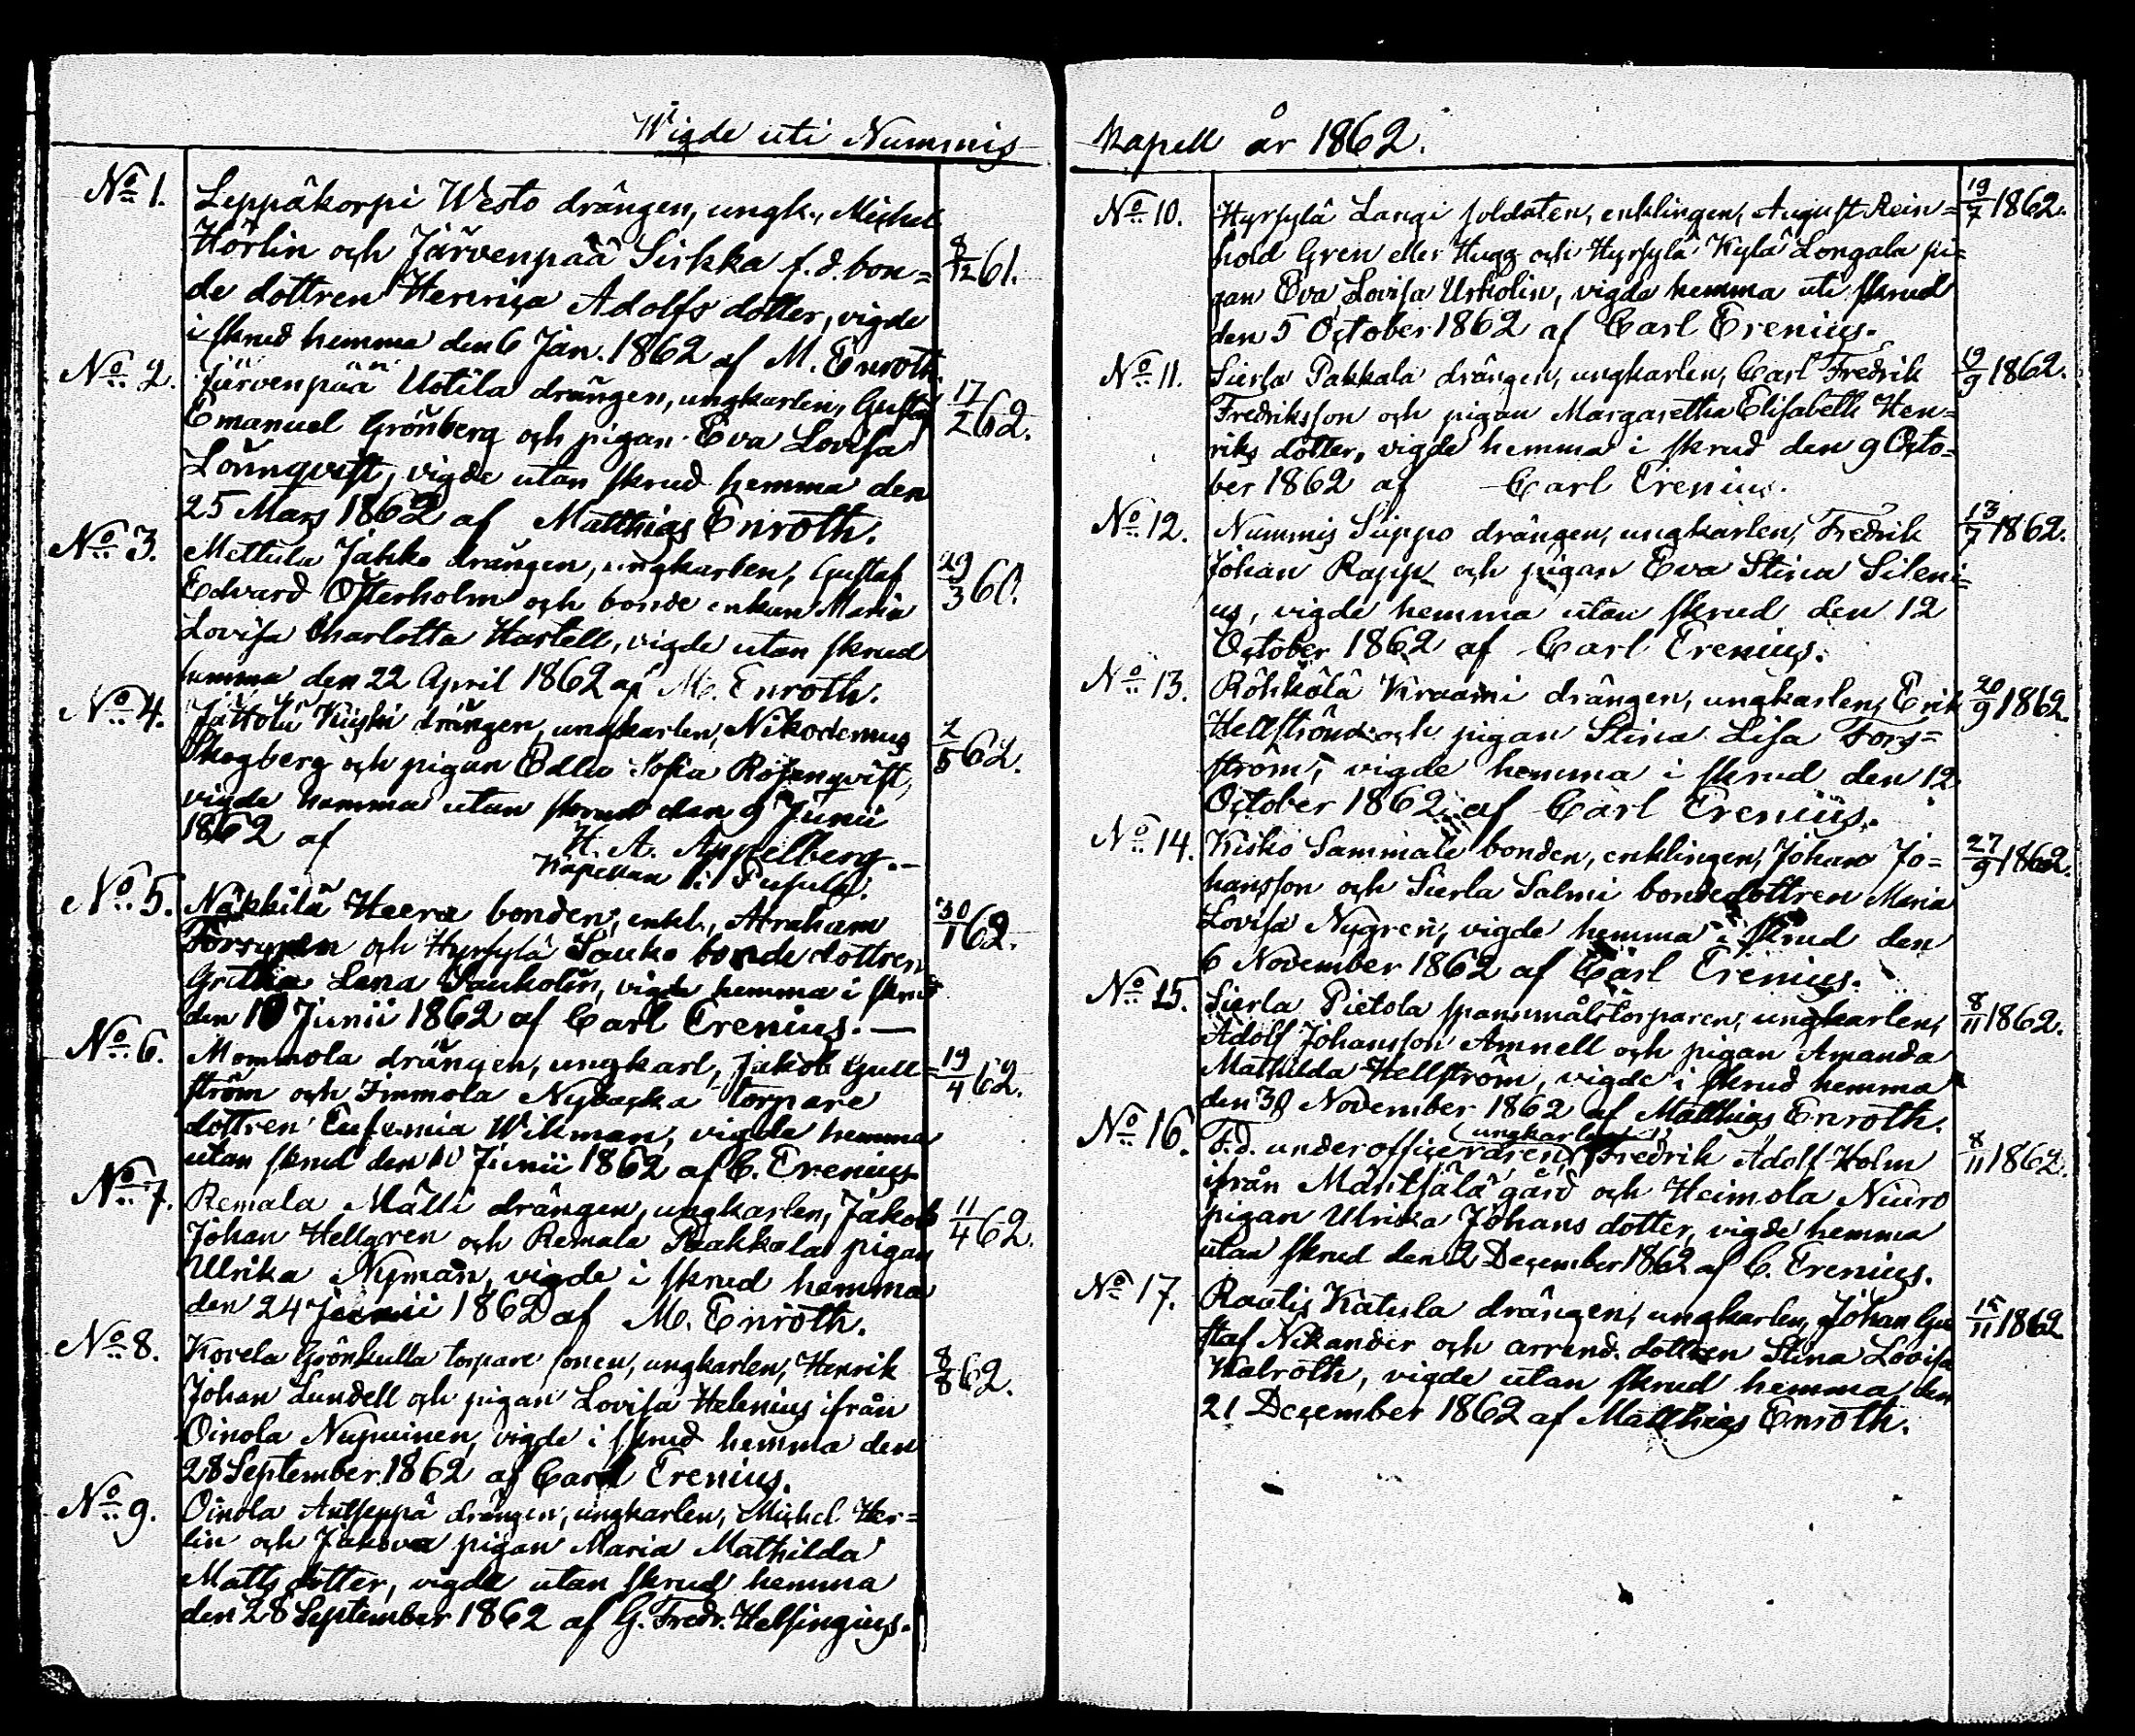 Wigde uti Nummis
No 1.
Leppäkorpi Westo drängen, ungk., Michel
Hörlin och Järvenpää Sirkka f.d. bon=
8/12 61.
de dottren Henrica Adolfs dotter, vigde
i skrud hemma den 6 Jan. 1862 af M. Enroth.
No 2.
Järvenpää Uotila drängen, ungkarlen, Gustaf
17/2 62.
Emanuel Grönberg och pigan Eva Lovisa
Lönnqvist, vigde utan skrud hemma den
25 Mars 1862 af Matthias Enroth.
No 3.
Mettula Jahko drängen, ungkarlen, Gustaf
29/3 60.
Edvard Österholm och bonde enkan Maria
Lovisa Charlotta Hartell, vigde utan skrud
hemma den 22 April 1862 af M. Enroth.
No 4.
Jättölä Kuski drängen, ungkarlen, Nikodemus
2/5 62.
Skogberg och pigan Edla Sofia Rosenqvist,
vigde hemma utan skrud den 9 Junii
1862 af H. A. Appelberg.-
Kapellan i Pusula.
No 5.
Näkkilä Heera bonden, enkl., Abraham
30/1 62.
Forsgren och Hyrsylä Sauko bonde dottren
Gretha Lena Saukolin, vigde hemma i skrud
den 10 Junii 1862 af Carl Erenius.—
No 6.
Mommola drängen, ungkarl, Jakob Gull=
19/4 62.
ström och Immola Nybacka torpare
dottren Eufemia Wikman, vigde hemma
utan skrud den 10 Junii 1862 af C. Erenius
No 7.
Remala Mälli drängen, ungkarlen, Jakob
11/4 62.
Johan Hellgren och Remala Paakkala pigan
Ulrika Nyman, vigde i skrud hemma
den 24 Junii 1862 af M. Enroth.
No 8.
Kovela Grönkulla torpare sonen, ungkarlen, Henrik
8/8 62.
Johan Lundell och pigan Lovisa Helenius ifrån
Oinola Nupuinen, vigde i skrud hemma den
28 September 1862 af Carl Erenius.
No 9.
Oinola Antseppä drängen, ungkarlen, Michel Her=
lin och Jakova pigan Maria Mathilda
Matts dotter, vigde utan skrud hemma
den 28 September 1862 af G. Fredr. Helsingius.
Kapell år 1862.
No 10.
Hyrsylä Langi soldaten, enklingen, August Rein=
19/7 1862.
hold Gren eller Hugg och Hyrsylä Kylä Longala pi=
gan Eva Lovisa Urholin, vigde hemma uti skrud
den 5 October 1862 af Carl Erenius.
No 11.
Sierla Pakkala drängen, ungkarlen, Carl Fredrik
19/9 1862.
Fredriksson och pigan Margaretha Elisabeth Hen=
riks dotter, vigde hemma i skrud den 9 Octo=
ber 1862 af Carl Erenius.
No 12.
Nummis Suppo drängen, ungkarlen, Fredrik
13/7 1862.
Johan Rapp och pigan Eva Stina Sileni=
us, vigde hemma utan skrud den 12
October 1862 af Carl Erenius.
No 13.
Röhkölä Kraami drängen, ungkarlen, Erik
20/9 1862.
Hellström och pigan Stina Lisa Fors=
ström, vigde hemma i skrud den 12
October 1862 af Carl Erenius.
No 14.
Kisko Sammalo bonden, enklingen, Johan Jo=
27/9 1862.
hansson och Sierla Salmi bondedottren Maria
Lovisa Nygren, vigde hemma i skrud den
6 November 1862 af Carl Erenius.
No 15.
Sierla Pietola spannmålstorparen, ungkarlen,
8/11 1862.
Adolf Johansson Amnell och pigan Amanda
Mathilda Hellström, vigde i skrud hemma
den 30 November 1862 af Matthias Enroth.
No 16.
ungkarlen
F.d. underofficeraren, Fredrik Adolf Holm
8/11 1862.
ifrån Mäntsälä gård och Heimola Niuro
pigan Ulrika Johans dotter, vigde hemma
utan skrud den 2 December 1862 af C. Erenius.
No 17.
Raatis Katula drängen, ungkarlen, Johan Gu
15/11 1862
staf Nikander och arrend. dottren Stina Lovisa
Walroth, vigde utan skrud hemma, den
21 December 1862 af Matthias Enroth.